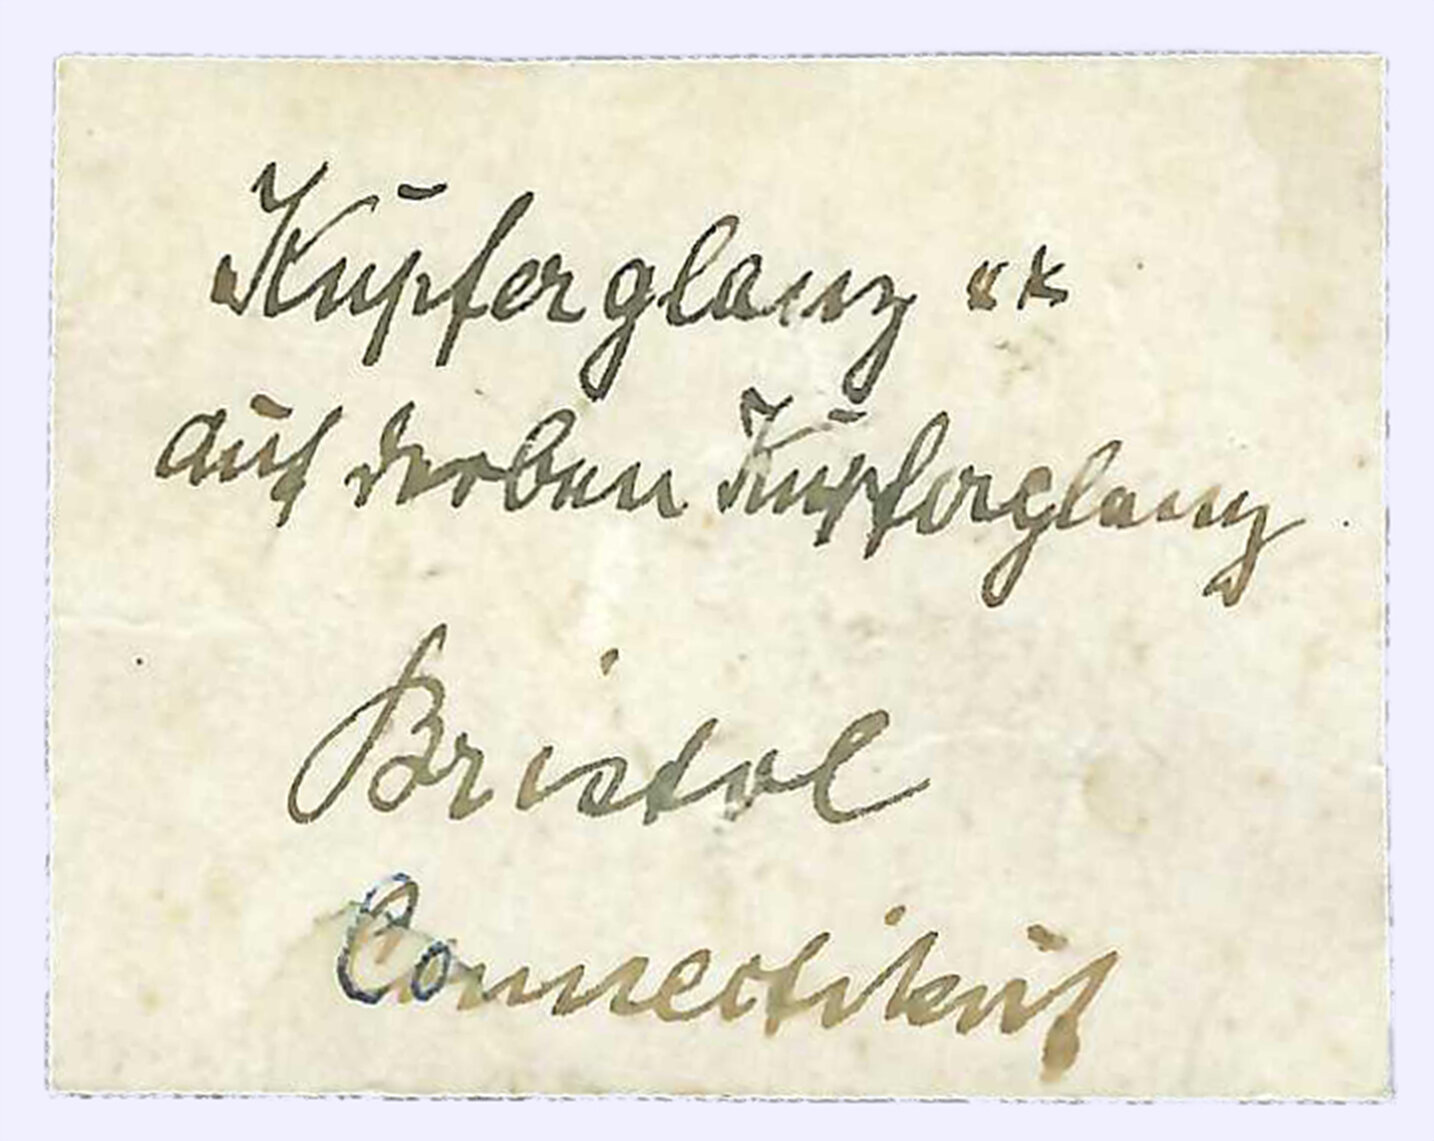 Kupferglanz xx
auf derben Kupferglanz
Bristol
Connectikut